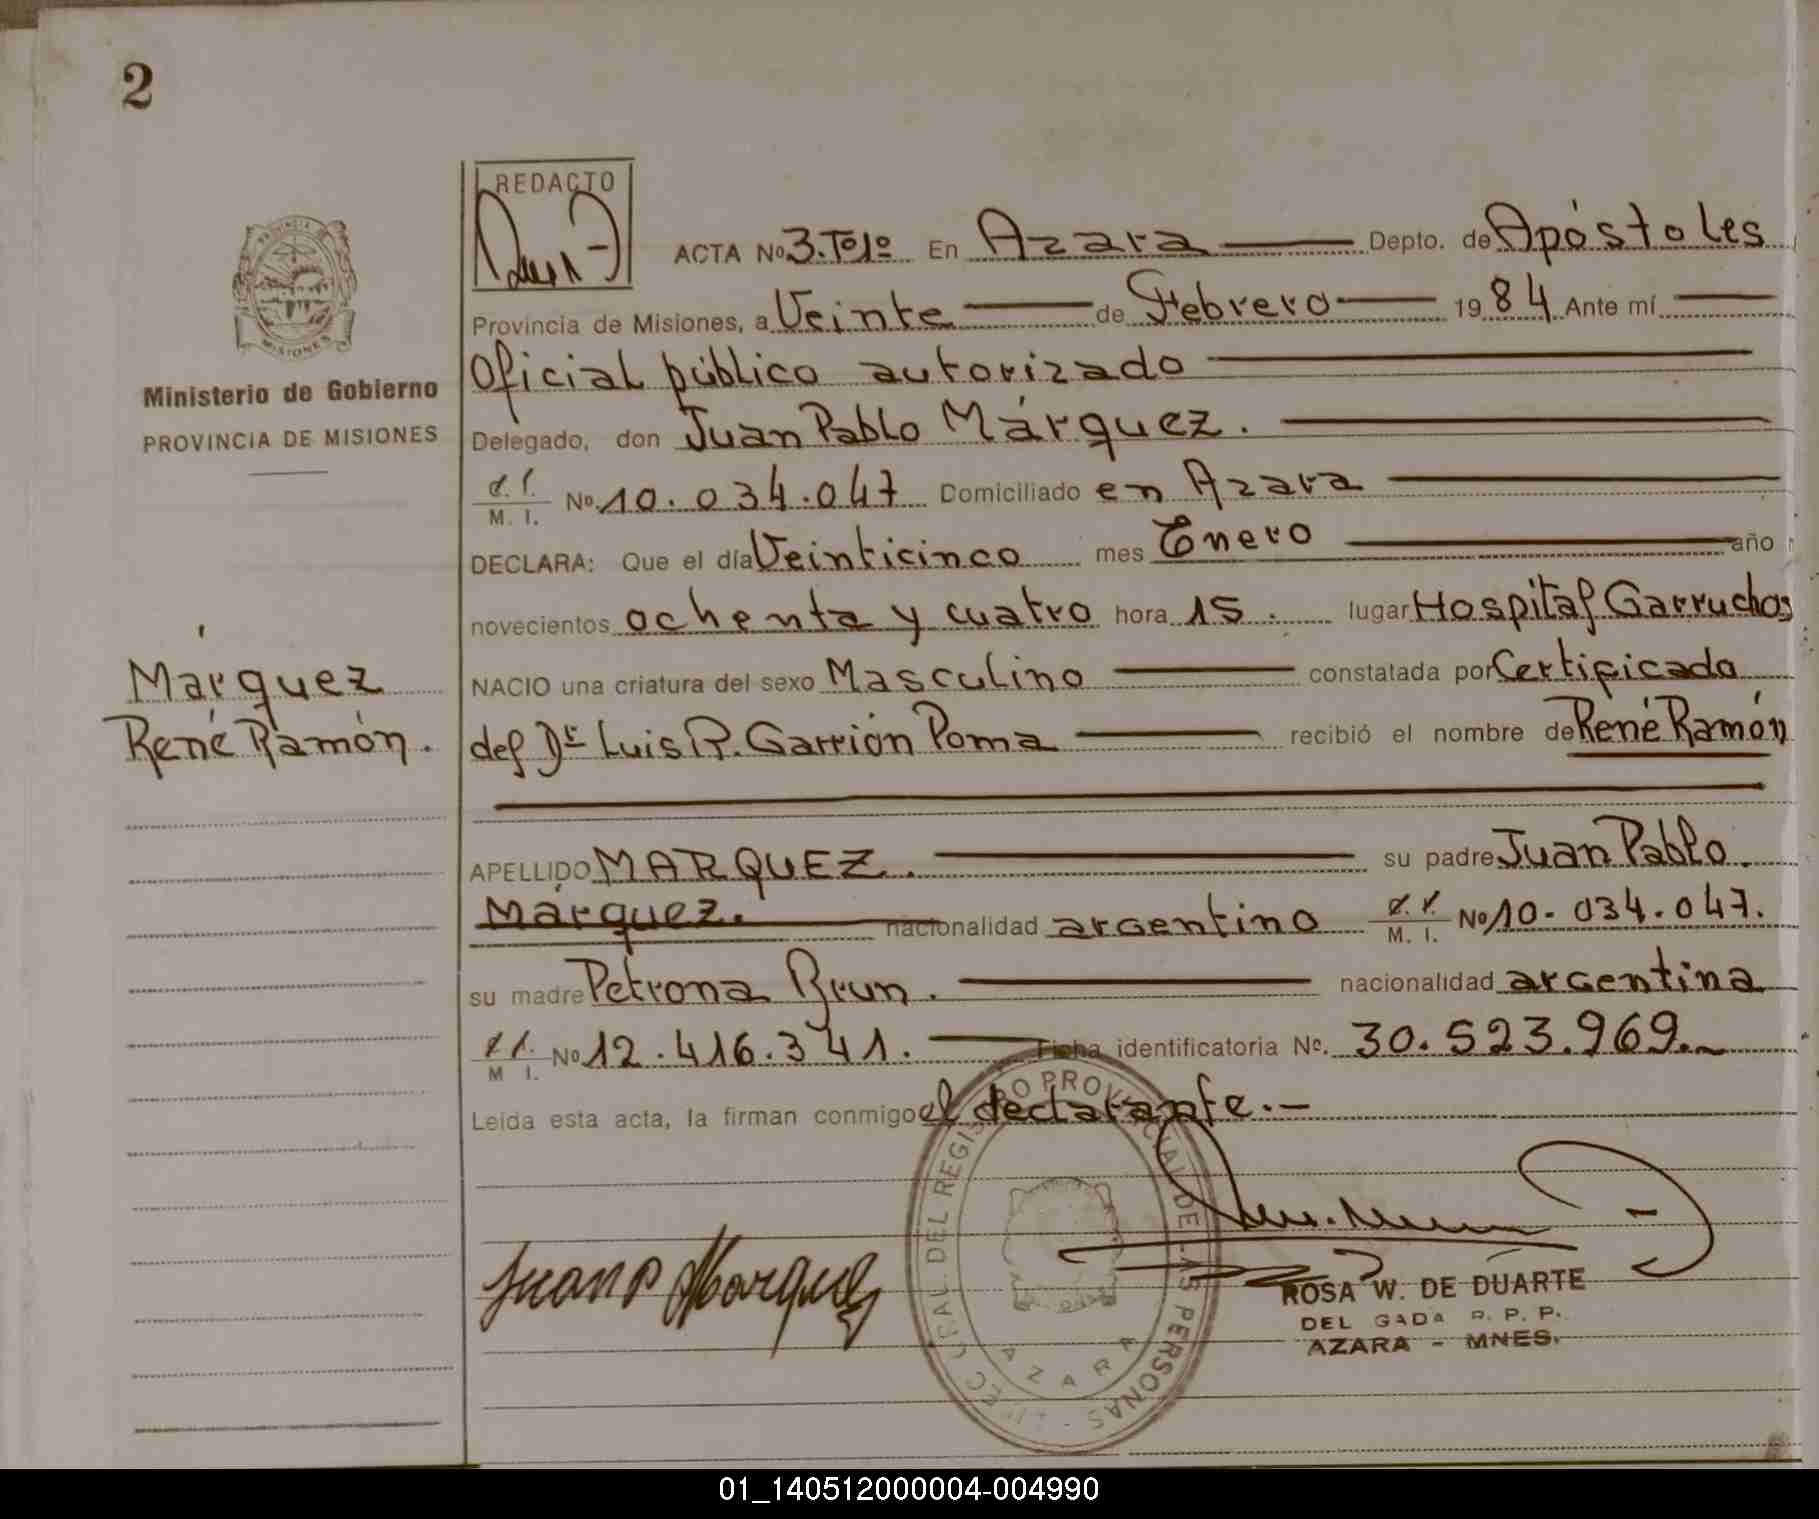 2
REDACTO
ACTA Nº 3.Tº1º En Azara Depto. de Apóstoles
Provincia de Misiones, a Veinte de Febrero 1984 Ante mí
Oficial público autorizado
Delegado, don Juan Pablo Márquez.
M. I. Nº 10.034.047 Domiciliado en Azara
DECLARA: Que el día Veinticinco mes Enero año
novecientos ochenta y cuatro hora 15. lugar Hospital Garruchos
NACIO una criatura del sexo Masculino constatada por Certificado
del Dr Luis R. Garrión Poma recibió el nombre de René Ramón
APELLIDO MARQUEZ. su padre Juan Pablo
Márquez. nacionalidad argentino M. I. Nº 10.034.047.
su madre Petrona Brun. nacionalidad argentina
M I. Nº 12.416.341. Ficha identificatoria Nº. 30.523.969.
Leída esta acta, la firman conmigo el declarante.-
PROVINCIA DE
MISIONES
Ministerio de Gobierno
PROVINCIA DE MISIONES
Márquez
René Ramón.
Juan P Marquez
DEL REGISTRO PROVINCIAL DE LAS PERSONAS
AZARA
ROSA W. DE DUARTE
DELEGADA R. P. P.
AZARA - MNES.
01_140512000004-004990